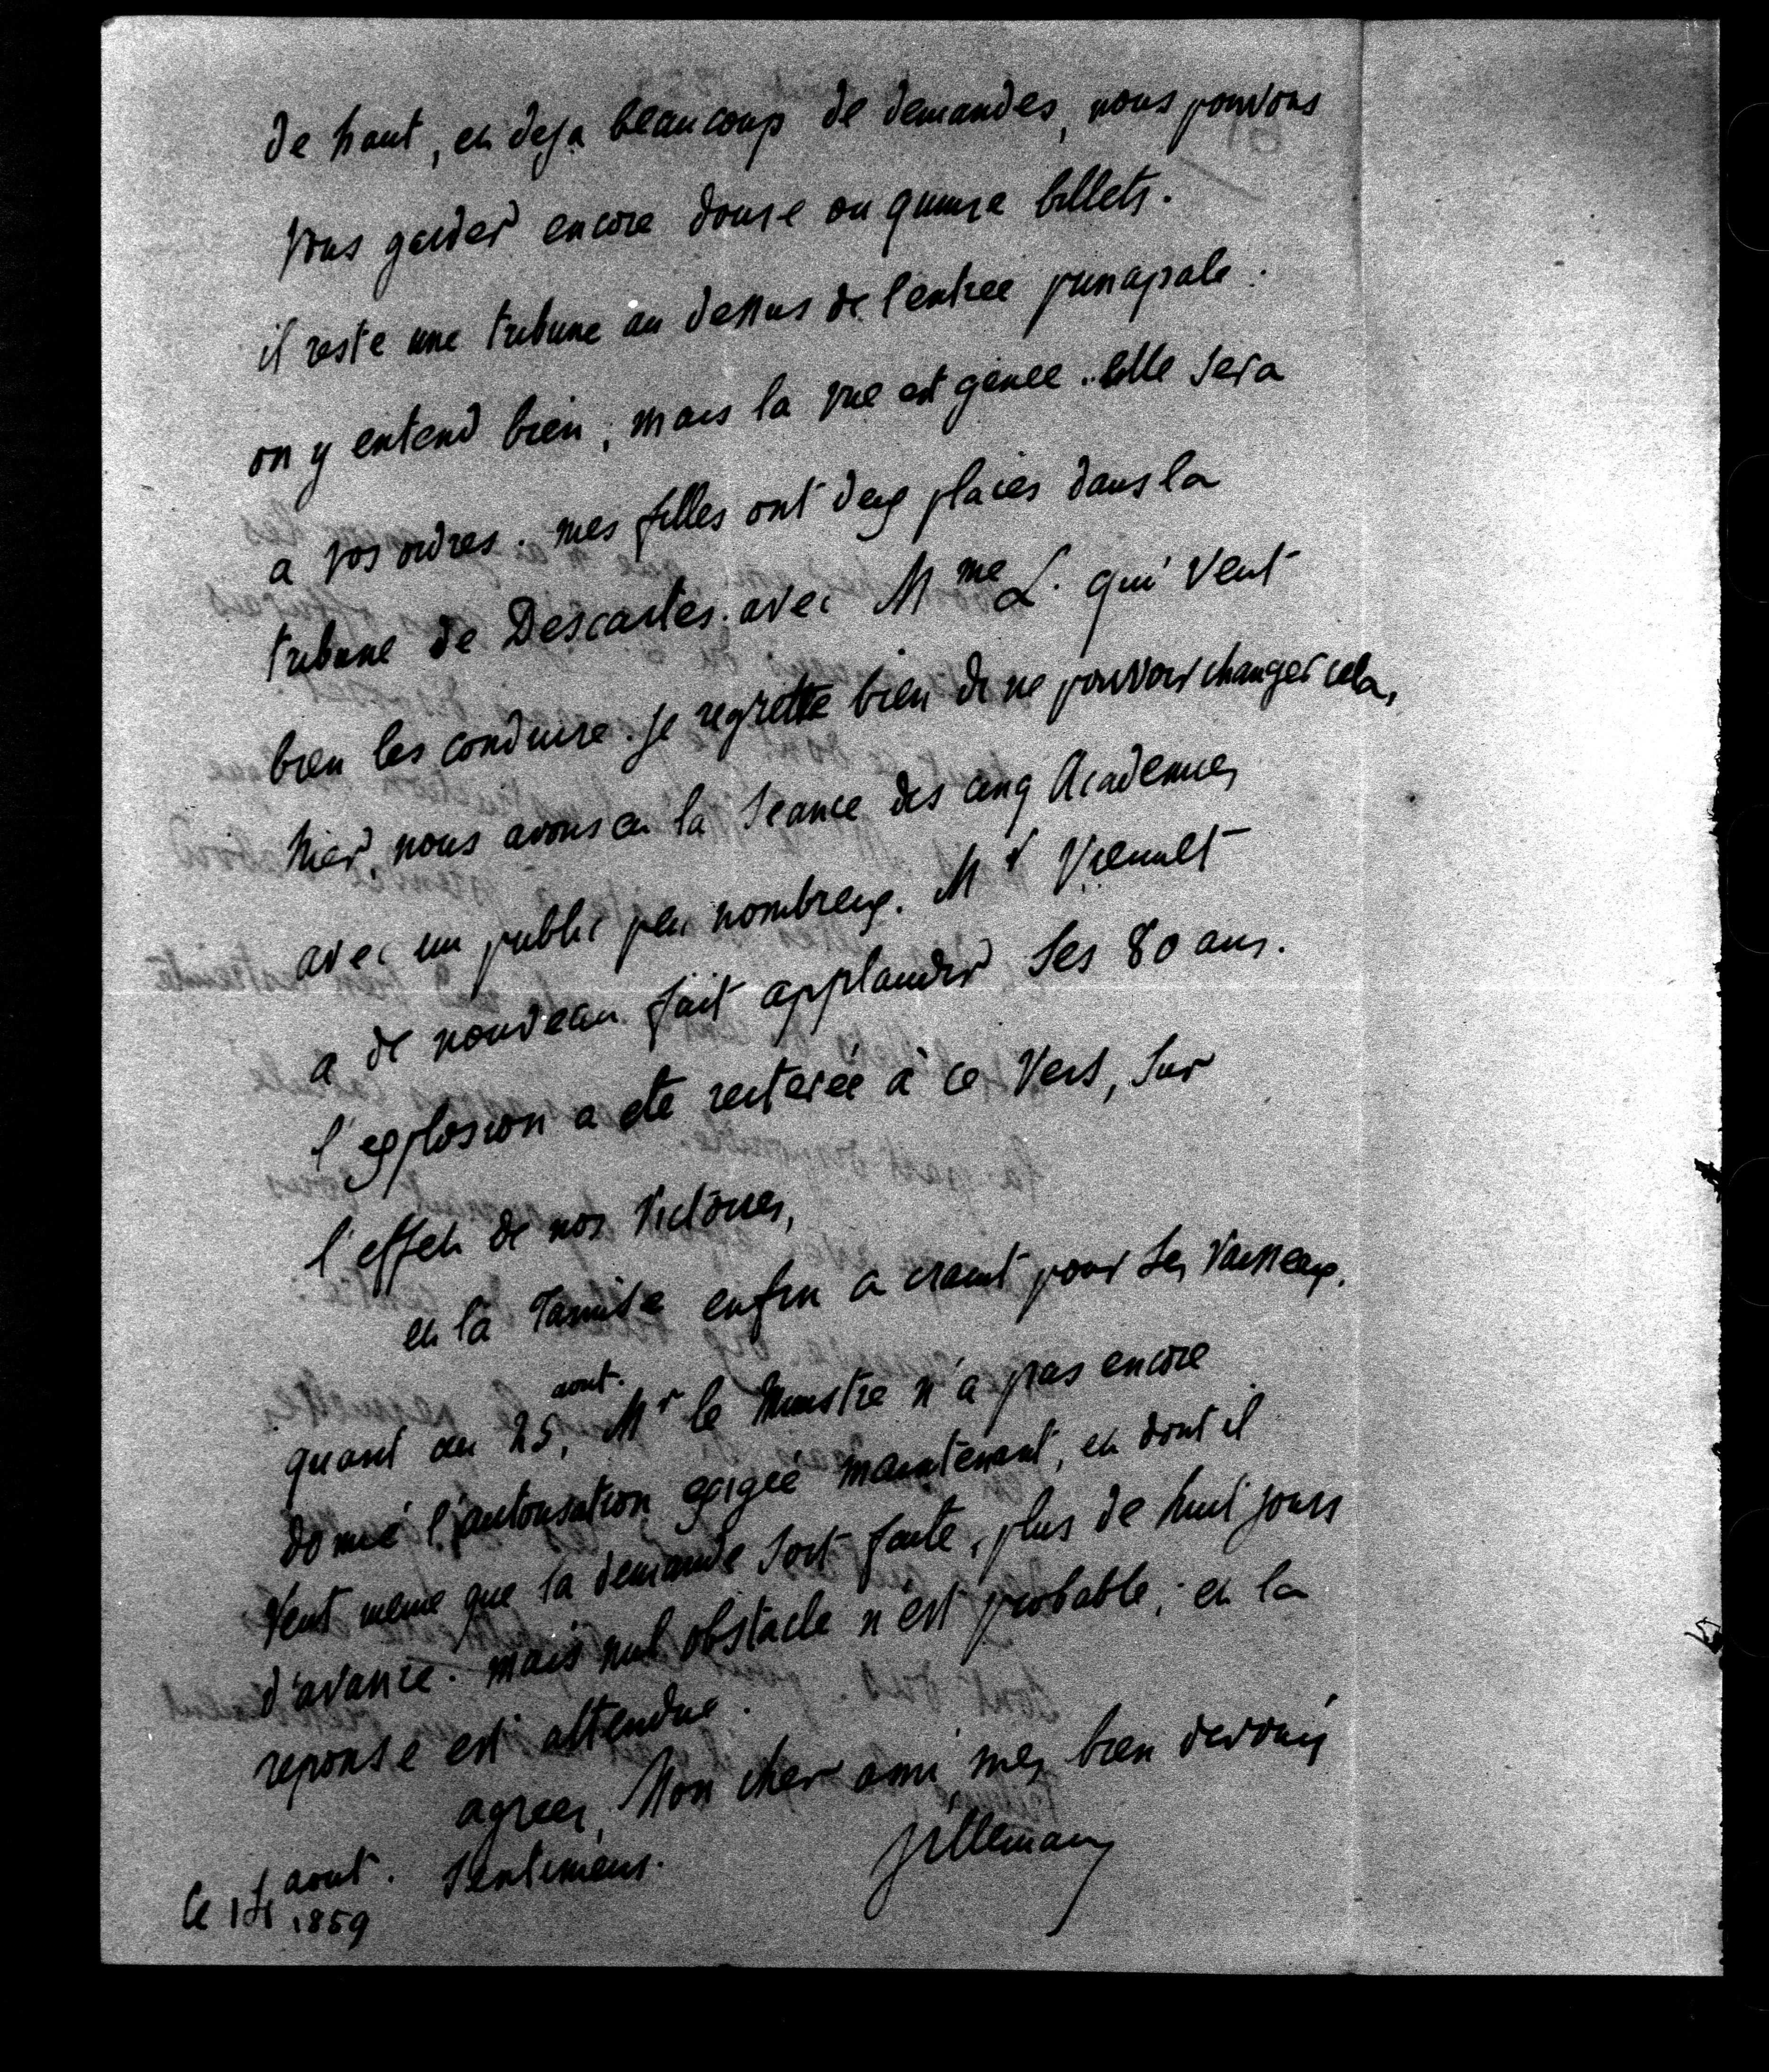 de haut, et deja beaucoup de demandes, nous pouvons
vous garder encore douse ou quinse billets.
il reste une tribune au dessus de l'entree principale.
on y entend bien; mais la vue est genee. elle sera
a vos ordres. mes filles ont deux places dans la
tribune de Descartes. avec Mme L. qui veut
bien les conduire. je regrette bien de ne pouvoir changer cela,
hier, nous avons eu la seance des cinq Academies
avec un public peu nombreux. Mr Viennet
a de nouveau fait applaudir ses 80 ans.
l'explosion a ete reiterée à ce vers, sur
l'effet de nos victoires,
et la Tamise enfin a craint pour ses vaisseaux.
quant au 25, aout. Mr le Ministre n'a pas encore
donné l'autorisation exigée maintenant, et dont il
veut meme que la demande soit faite, plus de huit jours
d'avance. mais nul obstacle n'est probable; et la
reponse est attendue.
agreez, Mon cher ami mes bien devoués
sentimens. Villemain
le aout.
1859